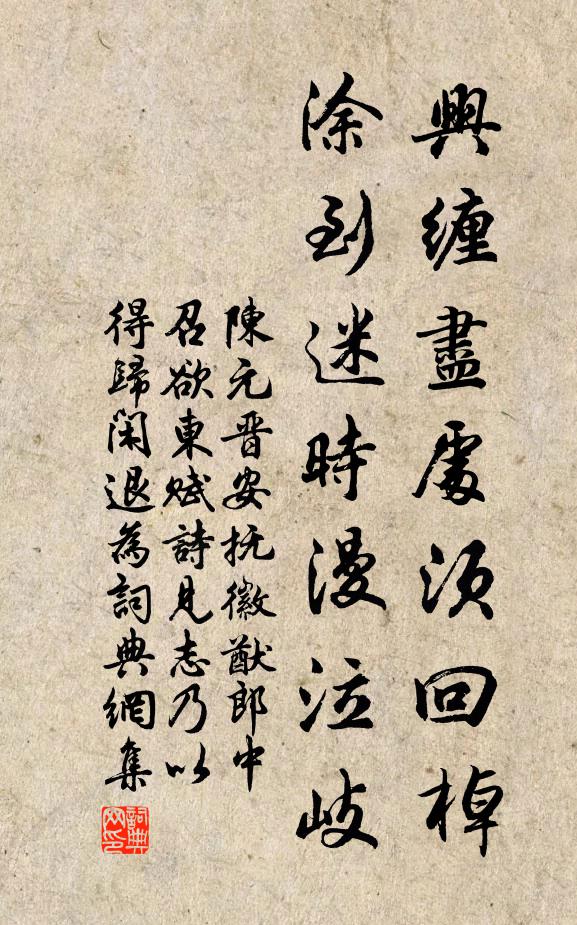 興纏盡處須回棹
涂到迷時漫泣岐
陳元晋安抚徽猷郎中
召欲東賦詩見志乃以
得歸閑退為詞典網集
詞典网印